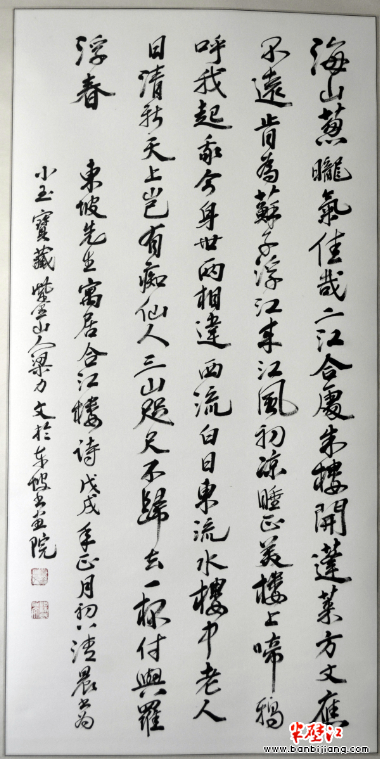 海山蔥曨氣佳哉二江合處朱樓開蓬萊方丈應
不遠肯為蘇子浮江來江風初涼睡正美樓上啼鴉
呼我起我今身世兩相違西流白日東流水樓中老人
日清新天上豈有痴仙人三山咫尺不歸去一杯付與羅
浮春
東坡先生寓居合江樓詩戊戌年正月初八清晨書為
小玉寶藏 山人梁力文於东坡书画院
半壁江
www.banbijiang.com